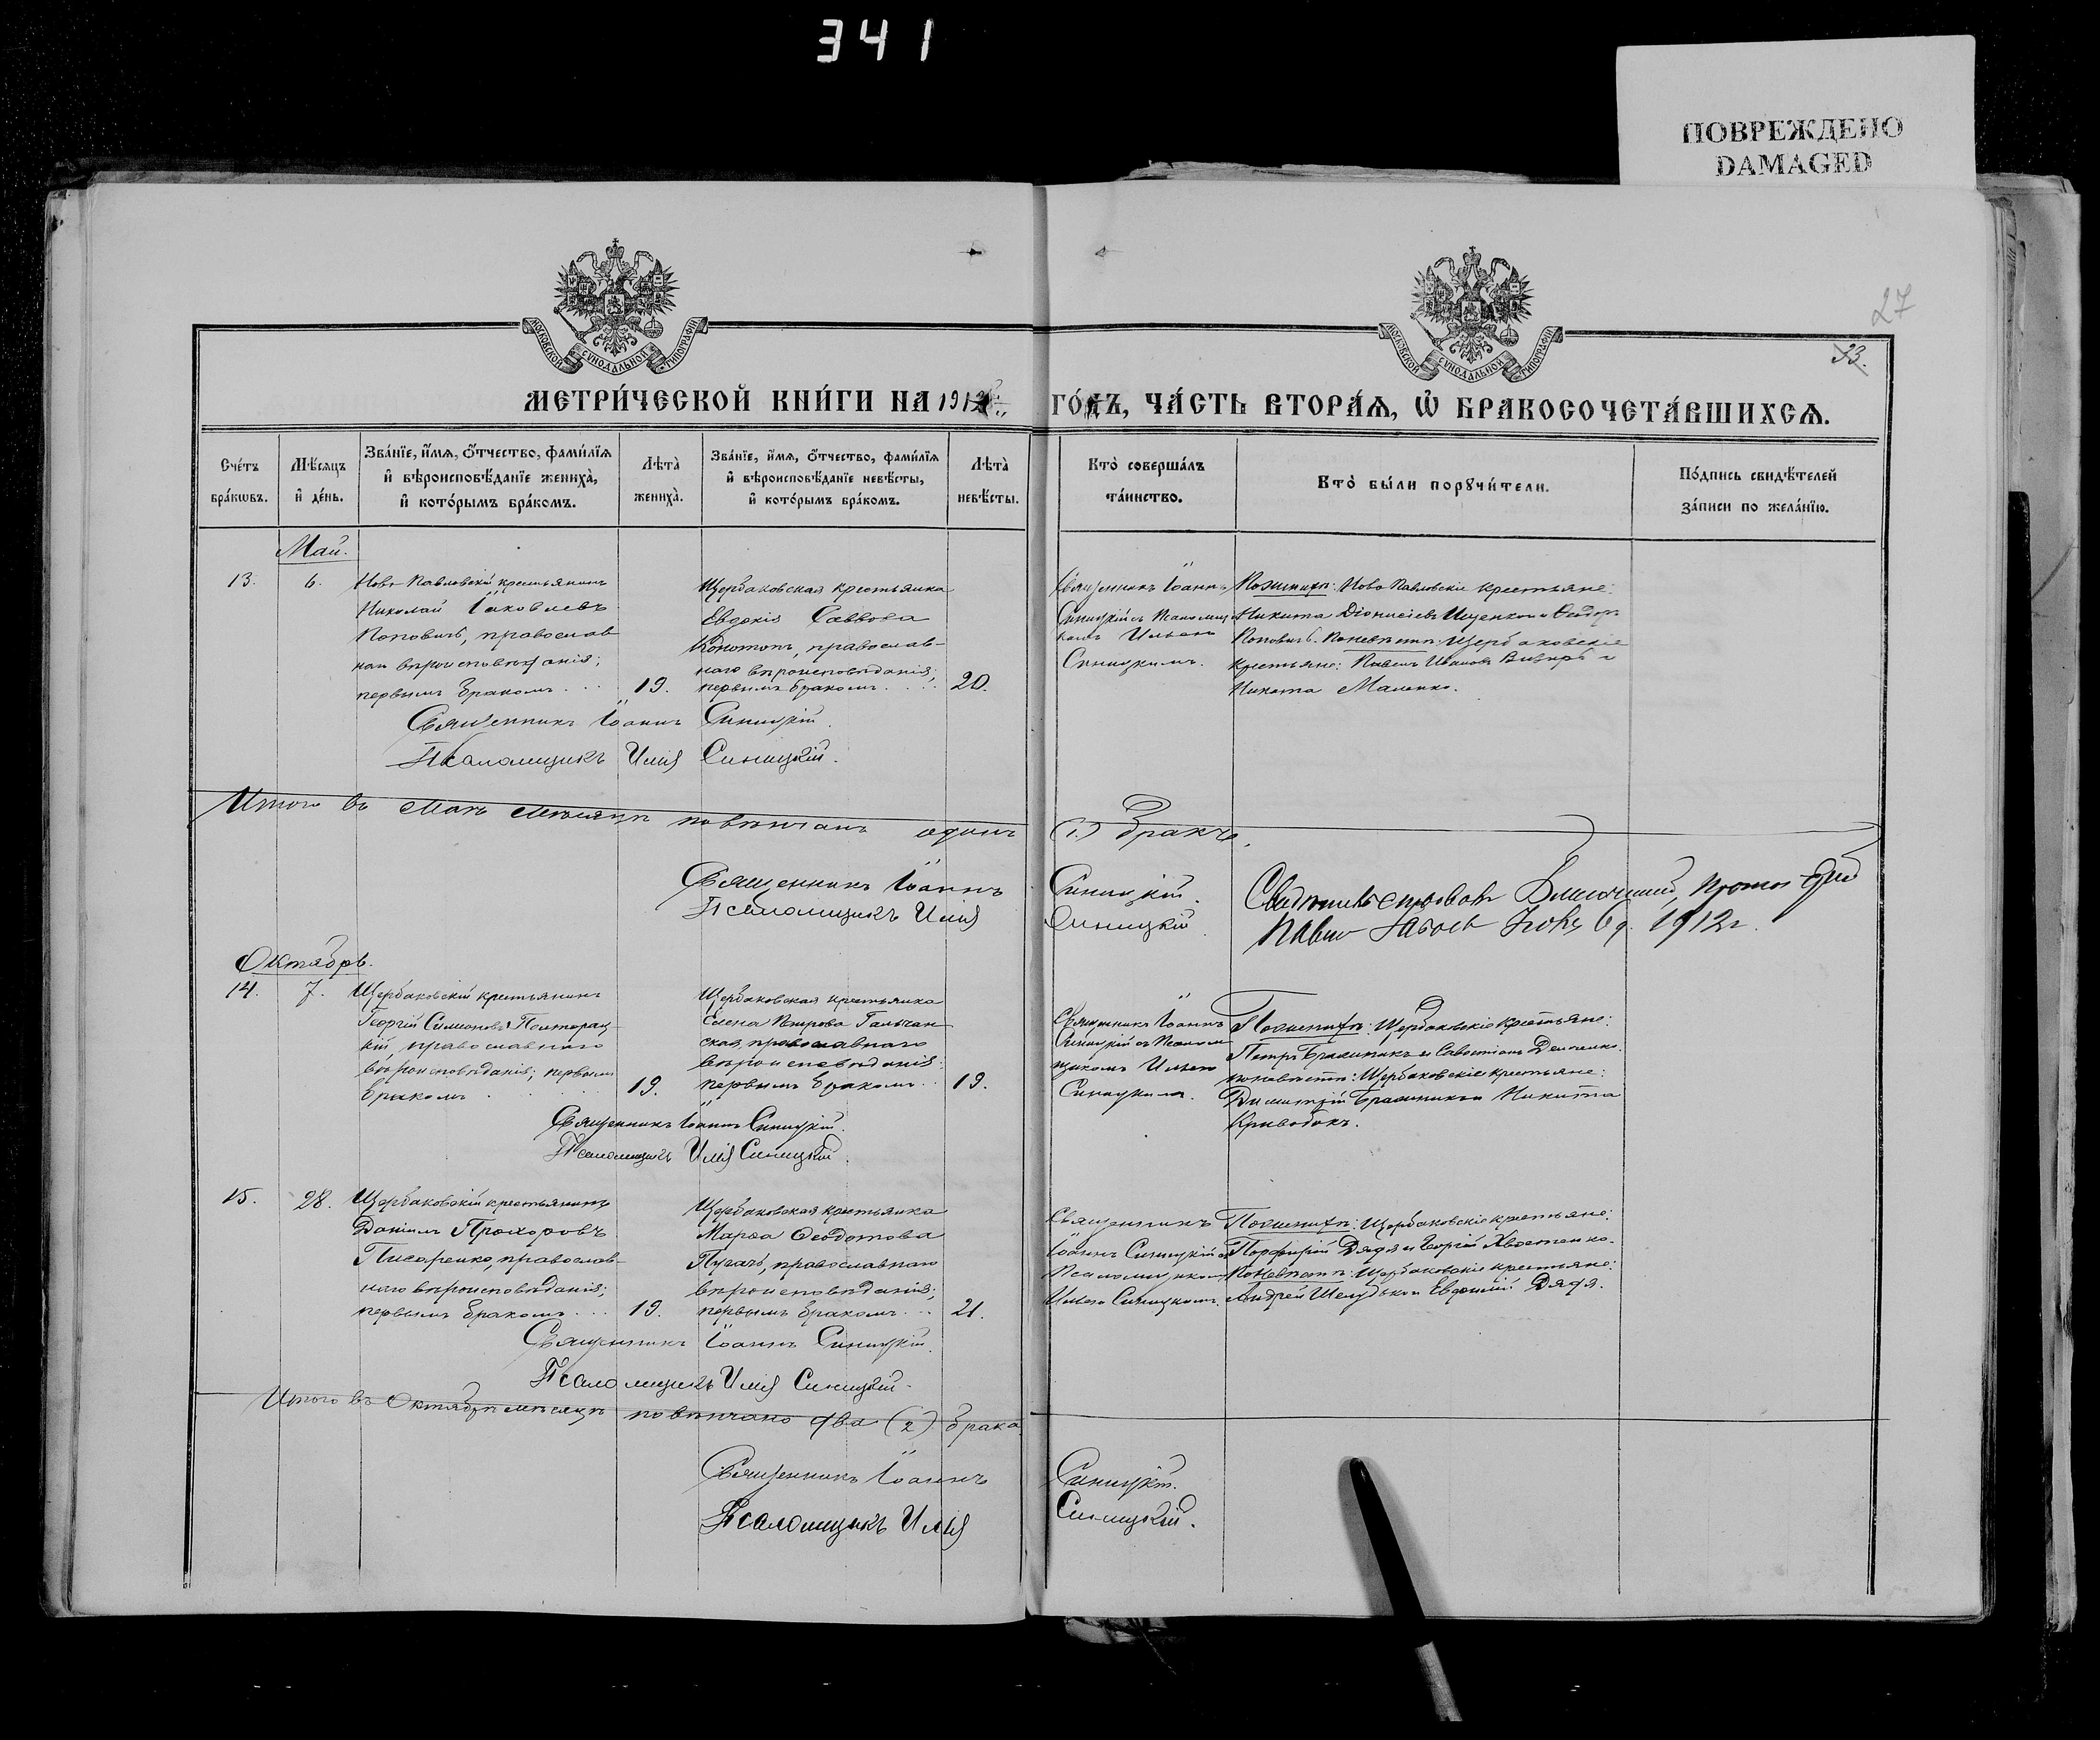 341
ПОВРЕЖДЕНО
DAMAGED
27
33.
МОСКОВСКОЙ СѴНОДАЛЬНОЙ ТИПОГРАФІИ
МОСКОВСКОЙ СѴНОДАЛЬНОЙ ТИПОГРАФІИ
МЕТРИ́ЧЕСКОЙ КНИ́ГИ НА 1912
ГО́ДЪ, ЧА́СТЬ ВТОРА́Ѧ, Ѽ БРАКОСОЧЕТА́ВШИХСѦ.
Сче́тъ бра́кѡвъ.
Мѣ́сѧцъ и҆ де́нь.
Зва́нїе, и҆́мѧ, ѻ҆́тчество, фами́лїѧ и҆ вѣроисповѣ́данїе жениха̀, и҆ кото́рымъ бра́комъ.
Лѣта̀ жениха̀.
Зва́нїе, и҆́мѧ, ѻ҆́тчество, фами́лїѧ и҆ вѣроисповѣ́данїе невѣ́сты, и҆ кото́рымъ бра́комъ.
Лѣта̀ невѣ́сты.
Кто̀ соверша́лъ та́инство.
Кто̀ бы́ли порꙋчи́тели.
По́дпись свидѣ́телей за́писи по жела́нїю.
Май.
13.
6.
Ново-Павловскій крестьянинъ
Николай Іаковлевъ
Поповичъ, православ-
наго вѣроисповѣданія;
первымъ бракомъ . . .
19.
Щербаковская крестьянка
Евдокія Саввова
Конотопъ, православ-
наго вѣроисповѣданія;
первымъ бракомъ . . .
20.
Священникъ Іоаннъ
Синицкій съ Псаломщи-
комъ Иліею
Синицкимъ.
По женихѣ: Ново Павловскіе крестьяне:
Никита Діонисіевъ Ищенко и Ѳеодоръ
Поповичъ. По невѣстѣ: Щербаковскіе
крестьяне: Павелъ Ивановъ и
Никита Маленко.
Священникъ Іоаннъ Синицкій.
Псаломщикъ Илія Синицкій.
Итого въ Маѣ мѣсяцѣ повѣнчанъ одинъ (1.) бракъ.
Священникъ Іоаннъ Синицкій.
Псаломщикъ Илія Синицкій
Павелъ 6 д. 1912 г.
Октябрь.
14.
7.
Щербаковскій крестьянинъ
Георгій Симеоновъ Полторац-
кій, православнаго
вѣроисповѣданія; первымъ
бракомъ . . . . .
19.
Щербаковская крестьянка
Елена Петрова Гальчан-
ская, православнаго
вѣроисповѣданія;
первымъ бракомъ . .
19.
Священникъ Іоаннъ
Синицкій съ Псалом-
щикомъ Иліею
Синицкимъ.
По женихѣ: Щербаковскіе крестьяне:
Петръ Бражникъ и Савостіанъ
по невѣстѣ: Щербаковскіе крестьяне:
Димитрій Бражникъ и Никита
Кривобокъ.
Священникъ Іоаннъ Синицкій.
Псаломщикъ Илія Синицкій.
15.
28.
Щербаковскій крестьянинъ
Даніилъ Прохоровъ
Писаренко, православ-
наго вѣроисповѣданія;
первымъ бракомъ . . .
19.
Щербаковская крестьянка
Марѳа Ѳеодотова
Пугачъ, православнаго
вѣроисповѣданія;
первымъ бракомъ . . .
21.
Священникъ
Іоаннъ Синицкій съ
Псаломщикомъ
Иліею Синицкимъ.
По женихѣ: Щербаковскіе крестьяне:
Порфирій Дядя и Георгій Хвостенко.
По невѣстѣ: Щербаковскіе крестьяне:
Андрей Шелудько и Евѳимій Дядя.
Священникъ Іоаннъ Синицкій.
Псаломщикъ Илія Синицкій.
Итого въ Октябрѣ мѣсяцѣ повѣнчано два (2) брака
Священникъ Іоаннъ Синицкій.
Псаломщикъ Илія Синицкій.